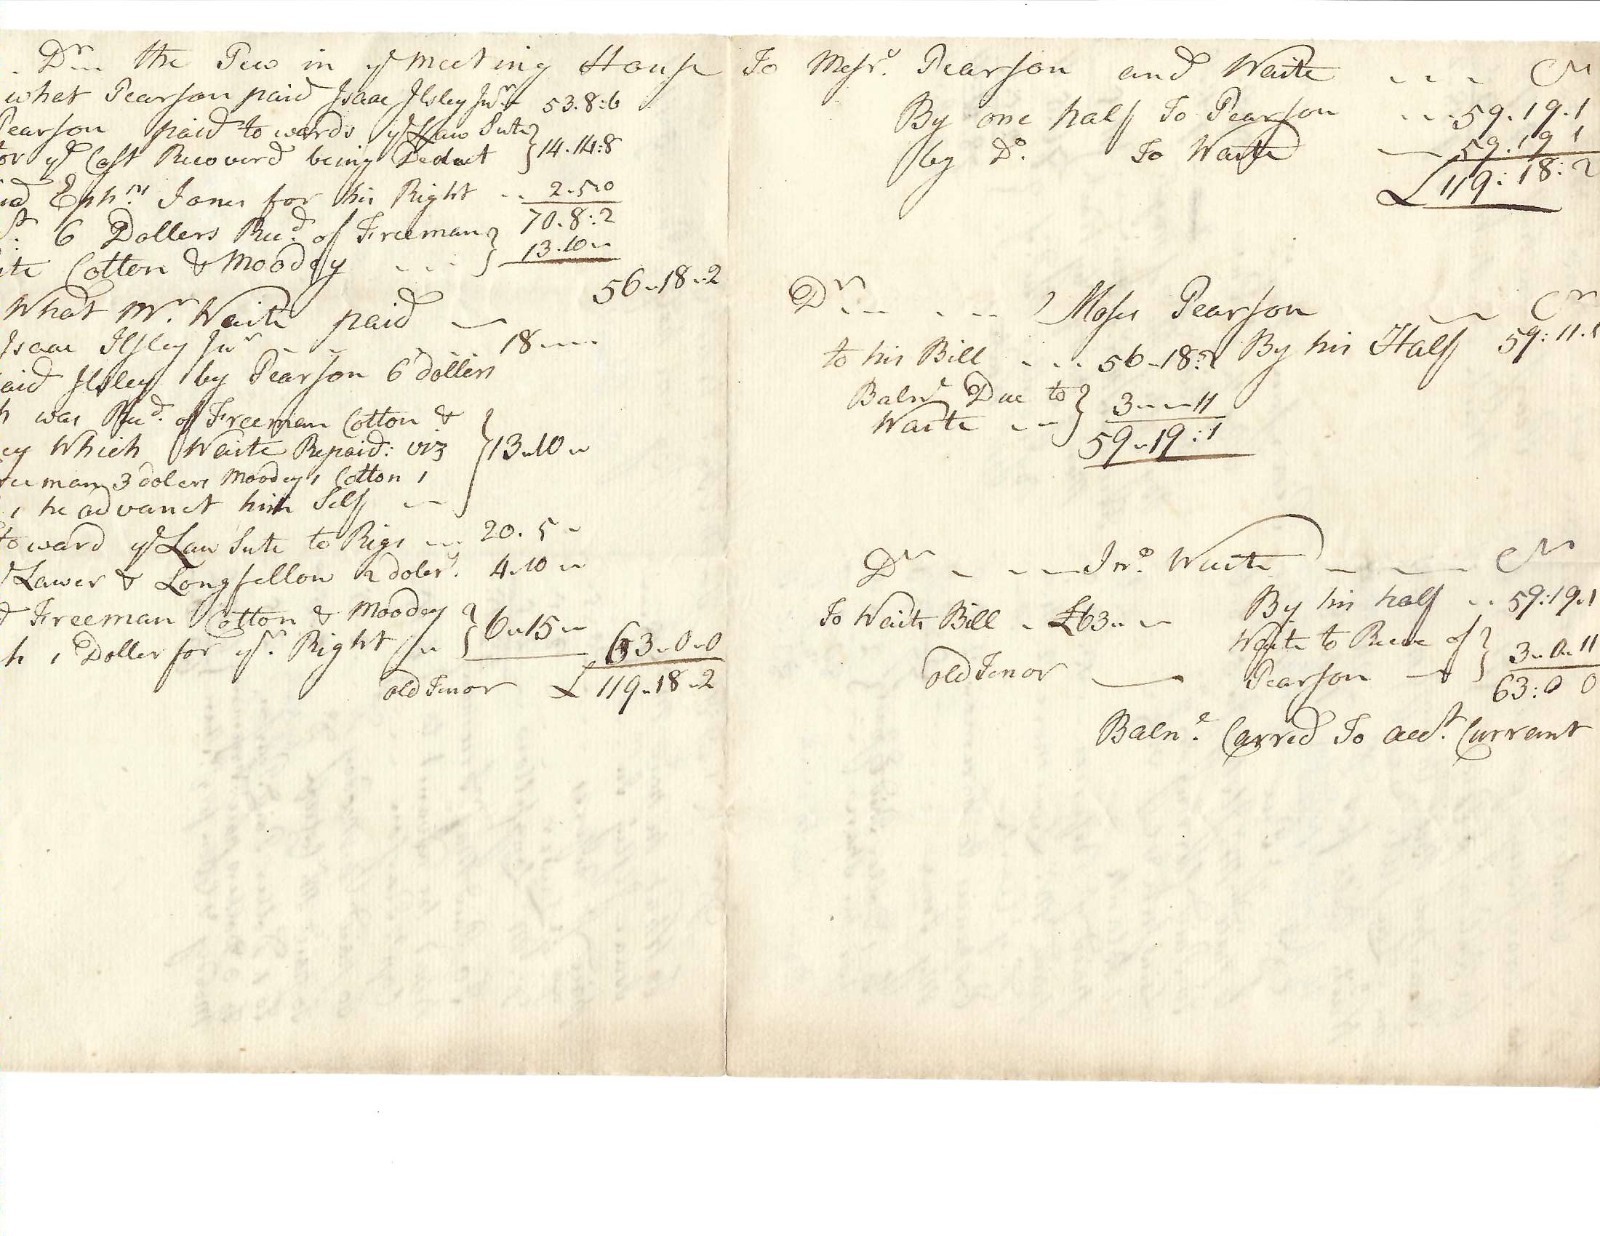 Dr... the Pew in ye Meeting House
what Pearson paid Isaac Ilsley Junr 53.8:6
Pearson paid towards ye Law Sute
for ye Cost Recoverd being Deduct } 14.14:8
Ephm Jones for his Right .. 2.5.0
70.8:2
6 Dollers Recd. of Freeman
Cotten & Moodey ... } 13.10..
56..18..2
What Mr. Waite paid —
Isaac Ilsley Junr 18....
said Ilsley by Pearson 6 dollers
was Recd. of Freeman Cotton &
Which Waite Repaid: viz } 13..10..
3 dolers Moodey 1 Cotton 1
1 he advanct him Self
toward ye Law Sute to Rigs ... 20.5..
Lawer & Longfellow 2 doler. 4.10..
Freeman Cotton & Moodey
1 Doller for yr. Right } 6..15.. 63..0..0
old Tenor £119..18..2
To Messrs. Pearson and Waite .... Cr
By one half To Pearson ...59.19.1
by Do. To Waite — 59.19 1
£119:18:2
Dr... ... Moses Pearson — Cr
to his Bill ... 56..18:2 By his Half 59:11.1
Balne Due to
Waite ... } 3....11
59..19:1
Dr ... Jno. Waite .... Cr
By his half .. 59:19.1
To Waits Bill . £63.. ..
Waite to Receve of
old Tenor — Pearson — } 3..0..11
63:0 0
Balne. Carred To acct. Currant